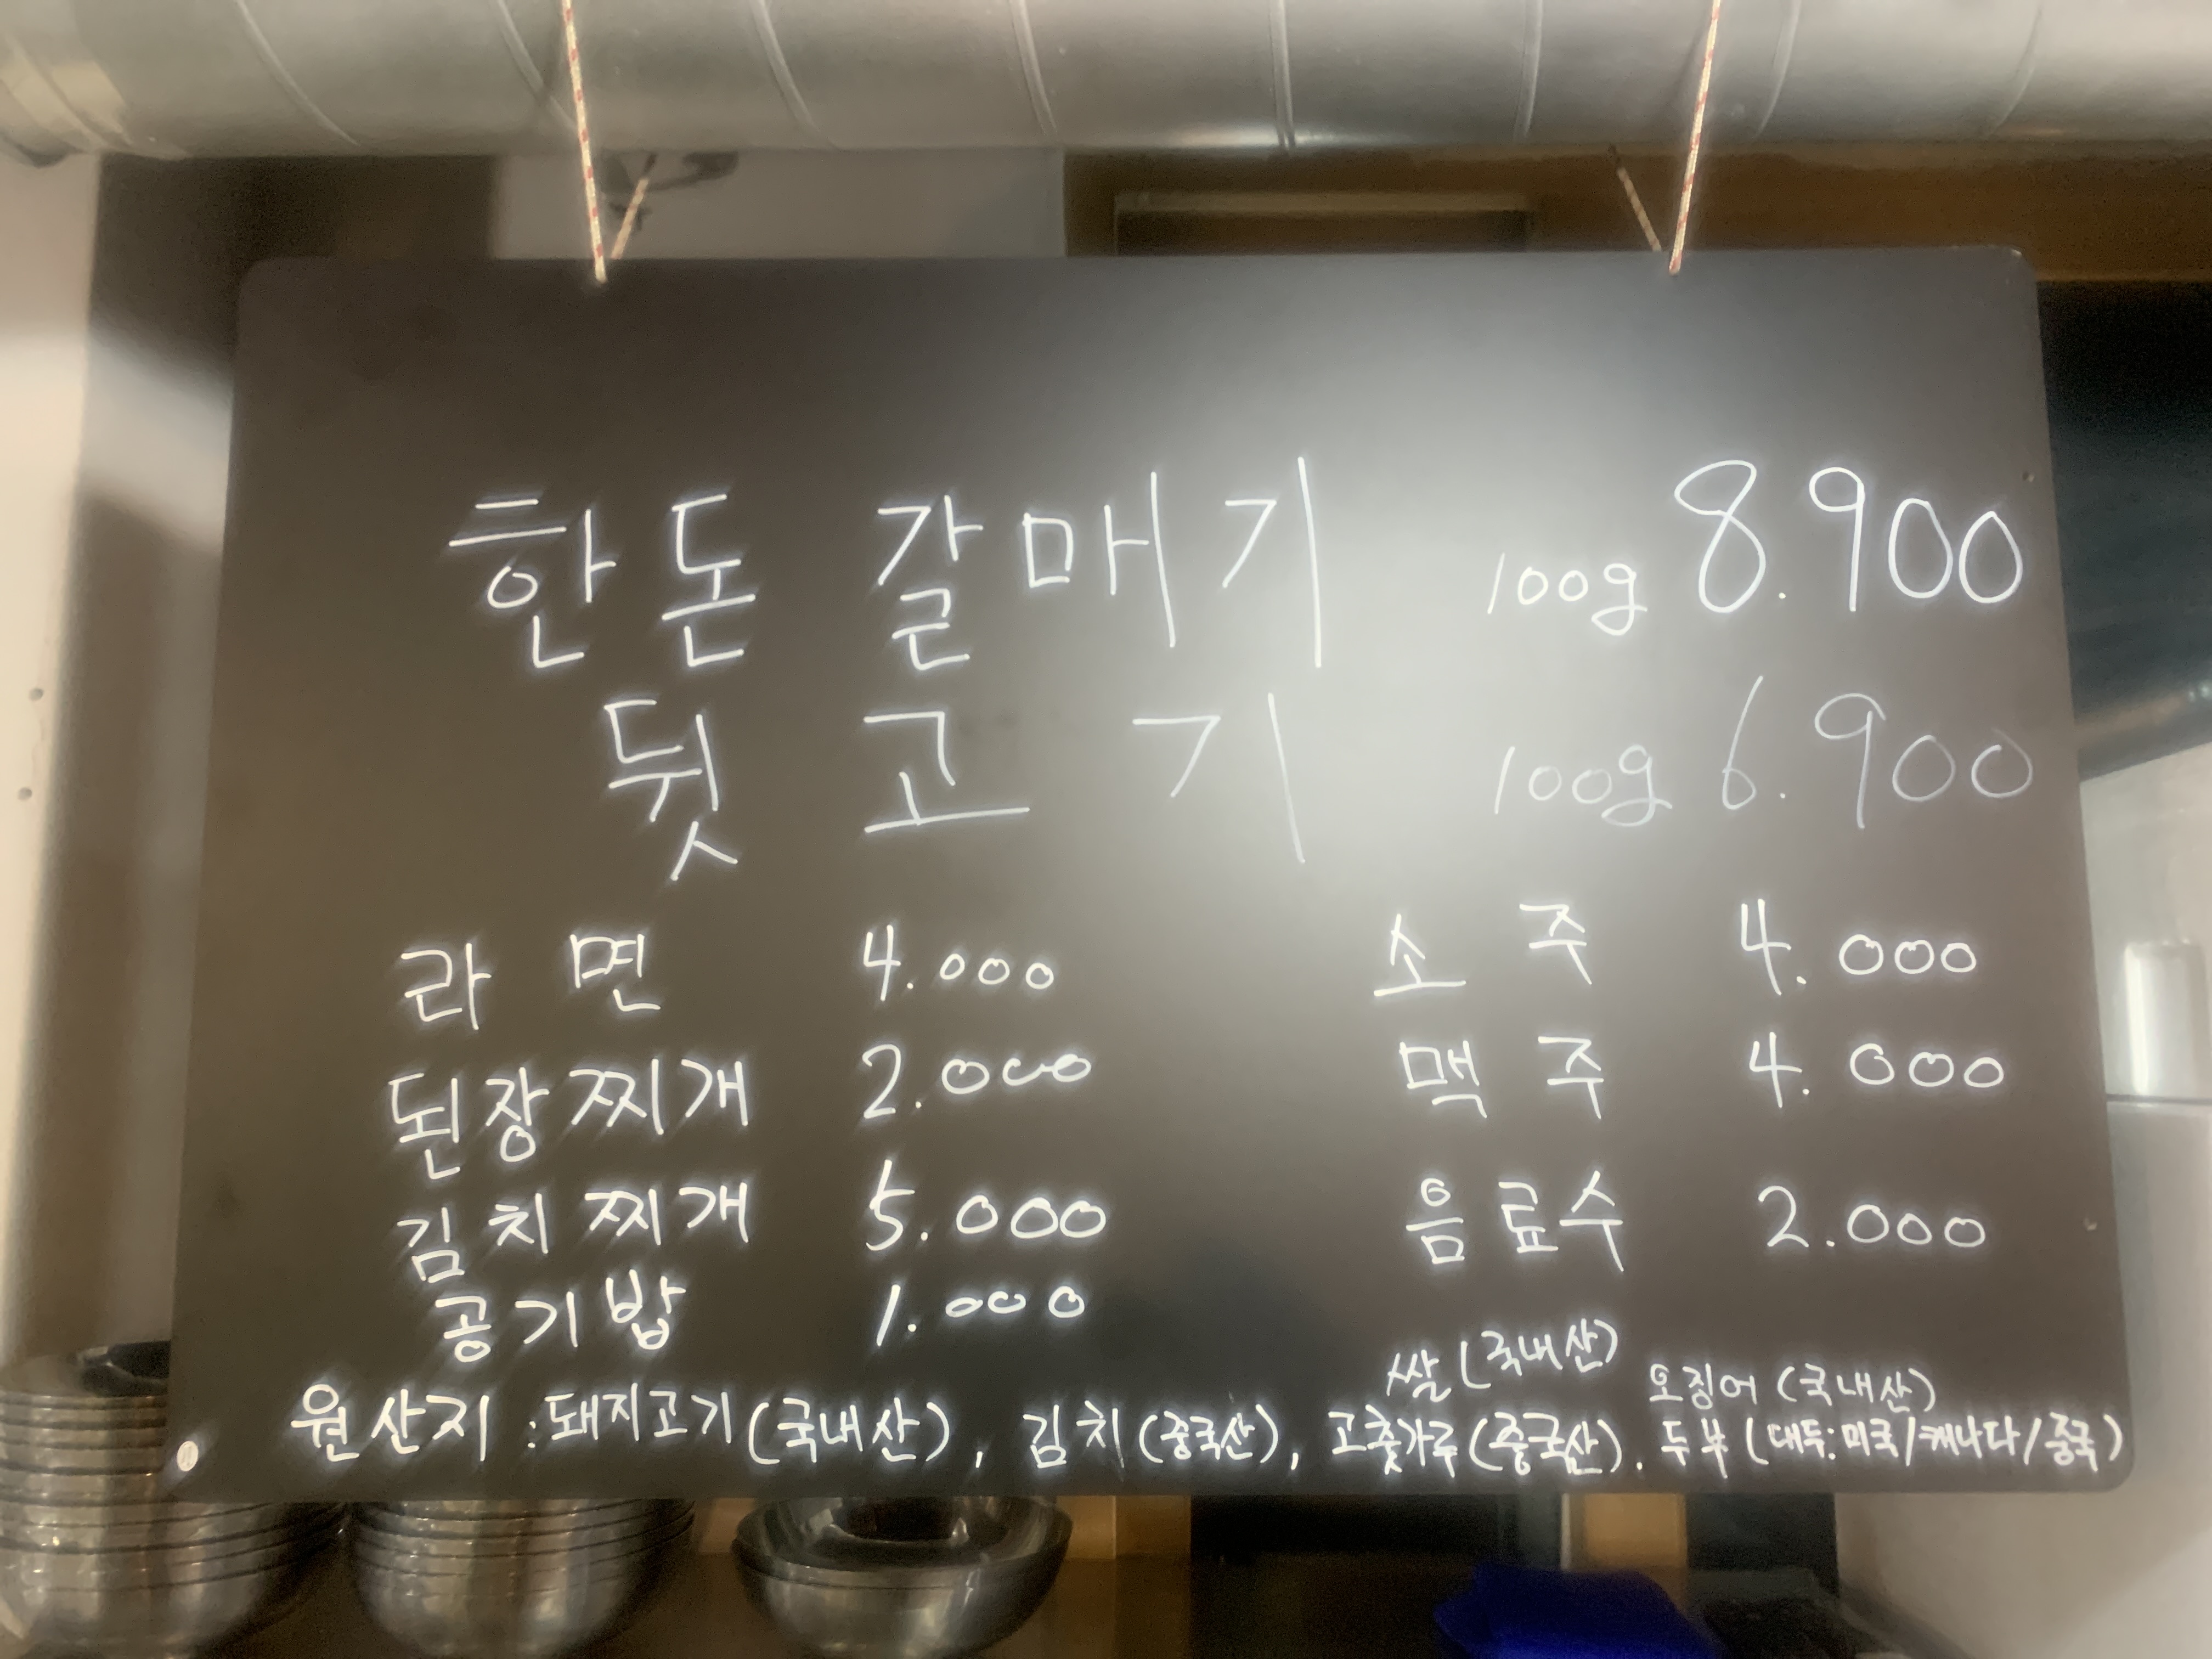 한돈 갈매기 100g 8.900
뒷고기 100g 6.900
라면 4.000 소주 4.000
된장찌개 2.000 맥주 4.000
김치찌개 5.000 음료수 2.000
공기밥 1.000
쌀(국내산) 오징어(국내산)
원산지 : 돼지고기(국내산), 김치(중국산), 고춧가루(중국산). 두부(대두:미국/캐나다/중국)